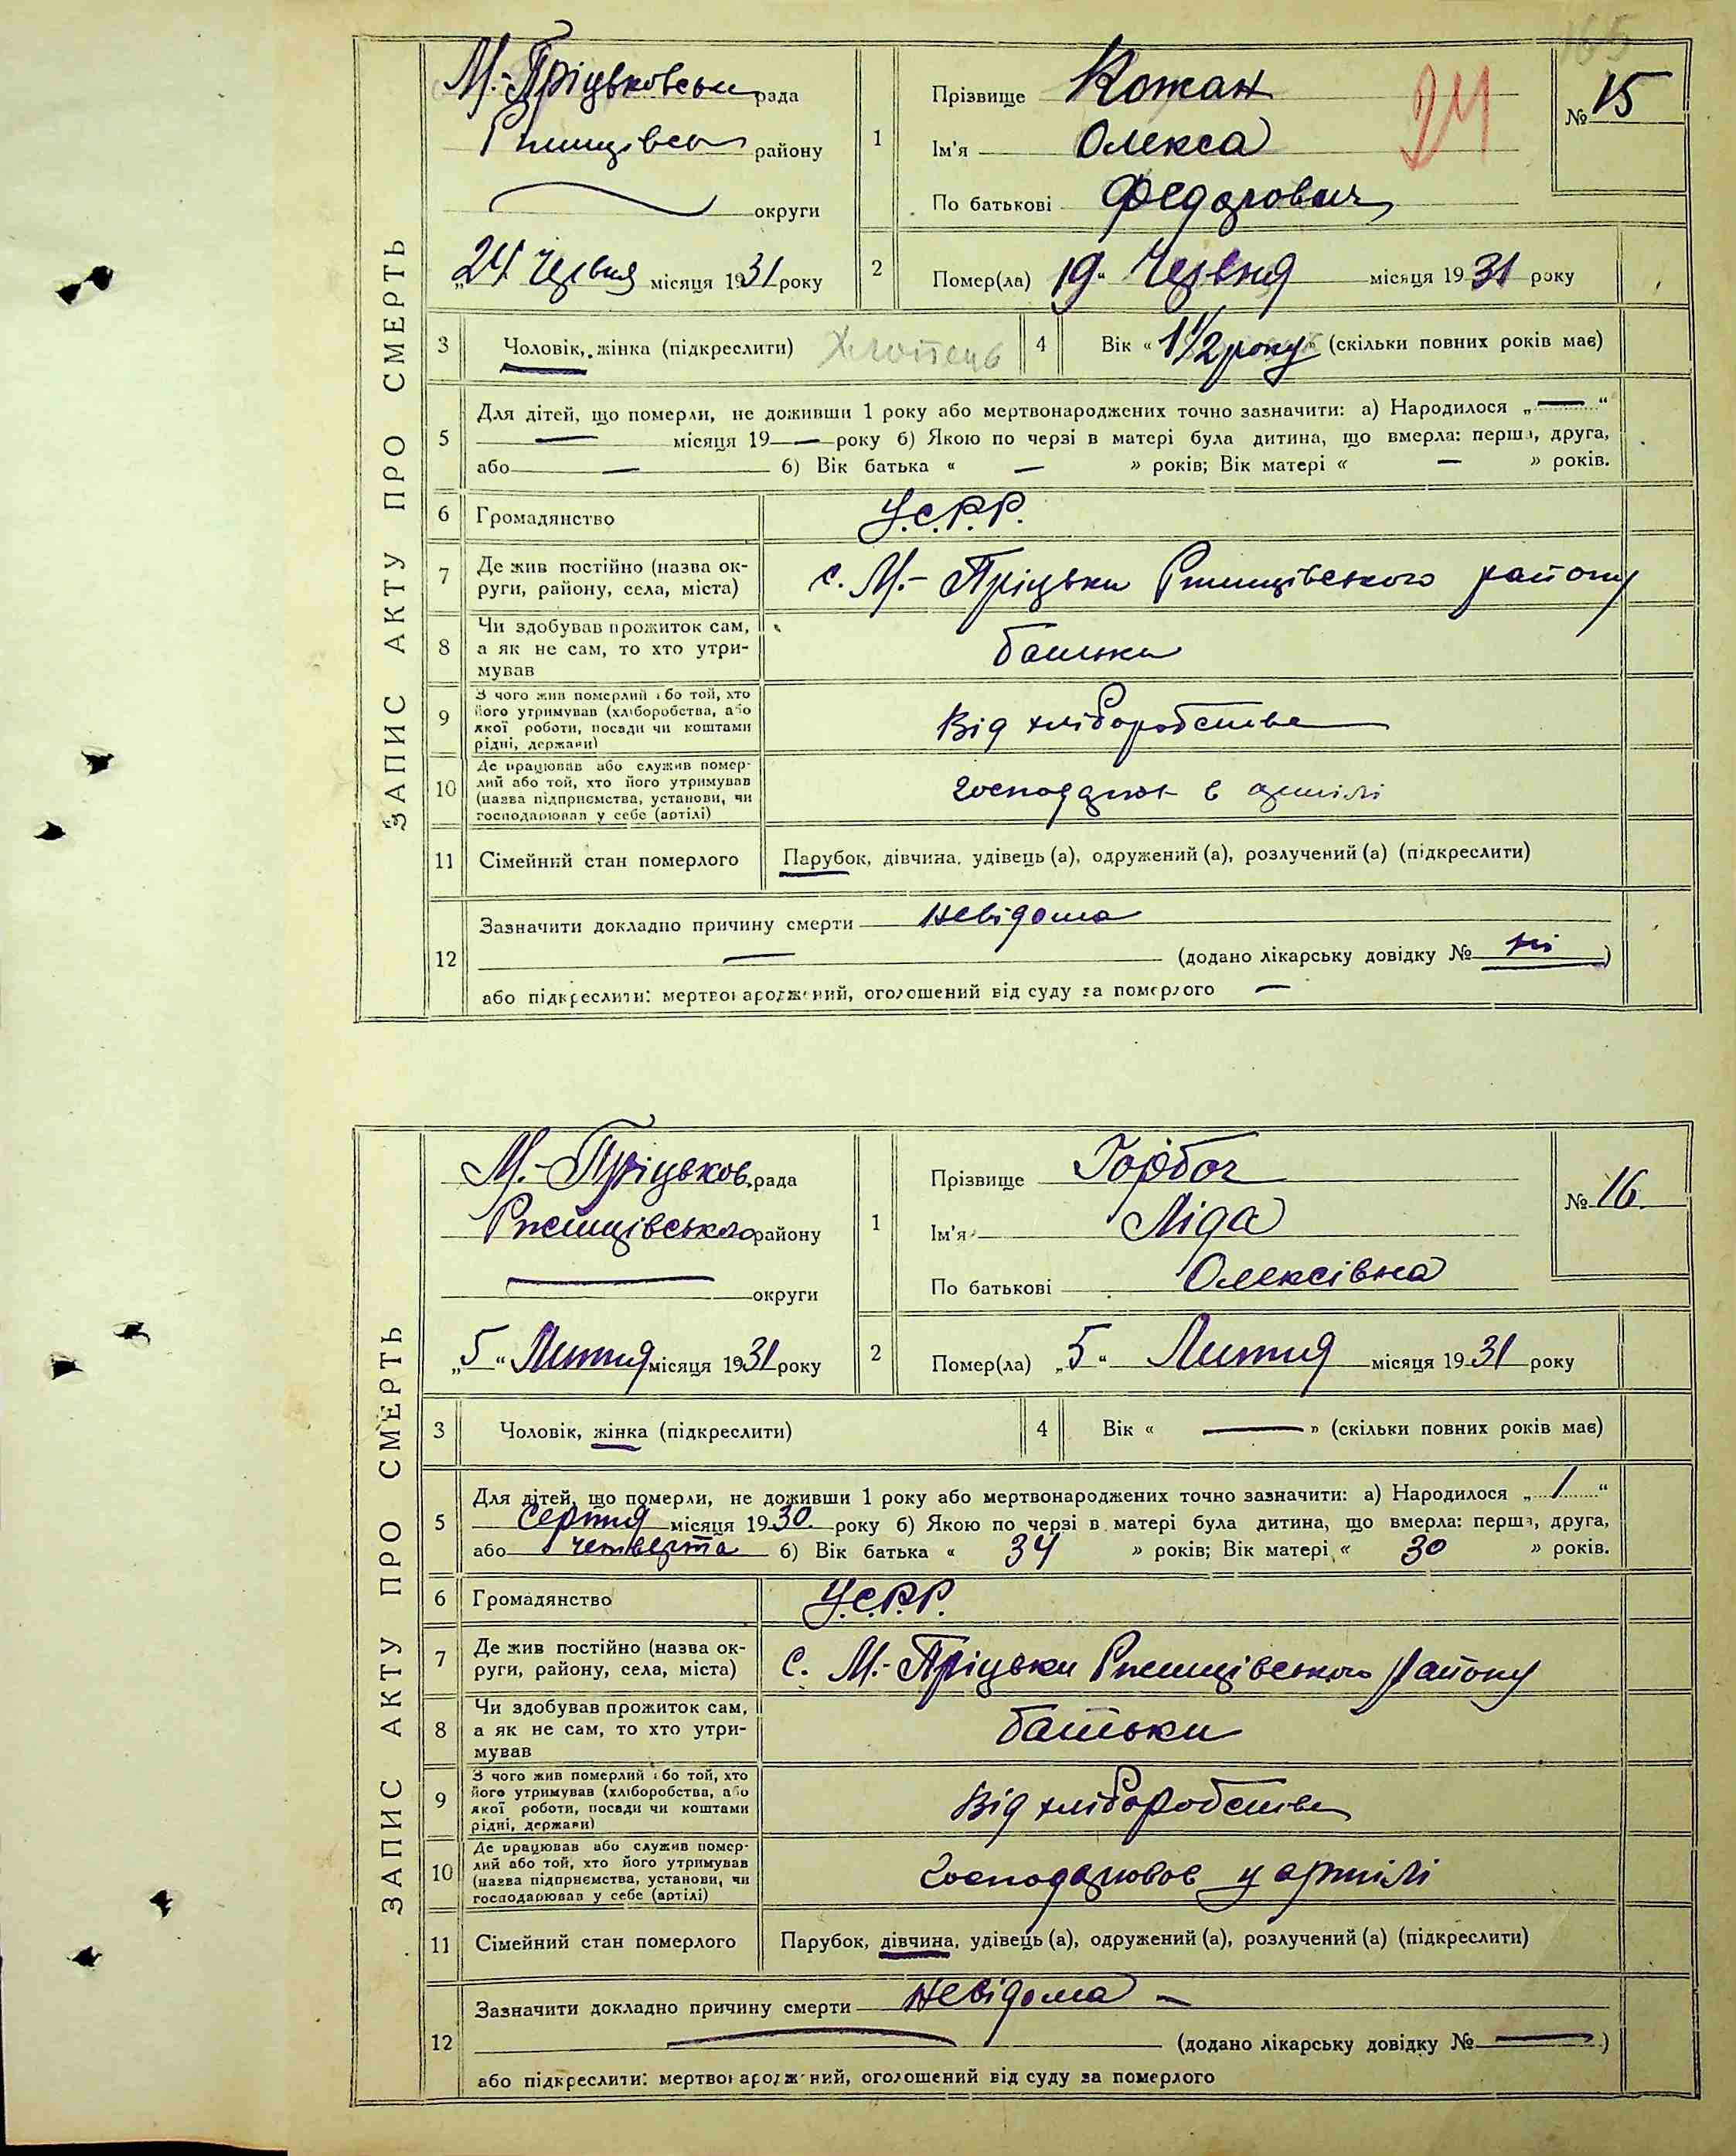 165
ЗАПИС АКТУ ПРО СМЕРТЬ
М.-Пріцьковськ рада
Ржищівськ району
округи
„24 Червня місяця 1931 року
1
Прізвище Кожан
Ім'я Олекса
По батькові Федорович
24
№ 15
2
Помер(ла) 19 „ Червня місяця 1931 року
3
Чоловік, жінка (підкреслити) Хлопець
4
Вік « 1 1/2 року » (скільки повних років має)
5
Для дітей, що померли, не доживши 1 року або мертвонароджених точно зазначити: а) Народилося „ — “
— місяця 19 — року б) Якою по черзі в матері була дитина, що вмерла: перша, друга,
або — 6) Вік батька « — » років; Вік матері « — » років.
6
Громадянство
У.С.Р.Р.
7
Де жив постійно (назва ок-
руги, району, села, міста)
с. М.- Пріцьки Ржищівського району
8
Чи здобував прожиток сам,
а як не сам, то хто утри-
мував
батьки
9
З чого жив померлий або той, хто
його утримував (хліборобства, або
якої роботи, посади чи коштами
рідні, держави)
Від хліборобства
10
Де працював або служив помер-
лий або той, хто його утримував
(назва підприємства, установи, чи
господарював у себе (артілі)
в артілі
11
Сімейний стан померлого
Парубок, дівчина, удівець (а), одружений (а), розлучений (а) (підкреслити)
12
Зазначити докладно причину смерти невідома
— (додано лікарську довідку № ні )
або підкреслити: мертвонароджений, оголошений від суду за померлого —
ЗАПИС АКТУ ПРО СМЕРТЬ
М.-Пріцьков. рада
Ржищівського району
— округи
„5“ Липня місяця 1931 року
1
Прізвище Горбач
Ім'я Ліда
По батькові Олексівна
№ 16.
2
Помер(ла) „5“ Липня місяця 1931 року
3
Чоловік, жінка (підкреслити)
4
Вік « — » (скільки повних років має)
5
Для дітей, що померли, не доживши 1 року або мертвонароджених точно зазначити: а) Народилося „ 1 “
Серпня місяця 1930. року б) Якою по черзі в матері була дитина, що вмерла: перша, друга,
або четверта 6) Вік батька « 34 » років; Вік матері « 30 » років.
6
Громадянство
У.С.Р.Р.
7
Де жив постійно (назва ок-
руги, району, села, міста)
с. М.-Пріцьки Ржищівського району
8
Чи здобував прожиток сам,
а як не сам, то хто утри-
мував
батьки
9
З чого жив померлий або той, хто
його утримував (хліборобства, або
якої роботи, посади чи коштами
рідні, держави)
Від хліборобства
10
Де працював або служив помер-
лий або той, хто його утримував
(назва підприємства, установи, чи
господарював у себе (артілі)
Господарював у артілі
11
Сімейний стан померлого
Парубок, дівчина, удівець (а), одружений (а), розлучений (а) (підкреслити)
12
Зазначити докладно причину смерти невідома —
(додано лікарську довідку № — )
або підкреслити: мертвонароджений, оголошений від суду за померлого